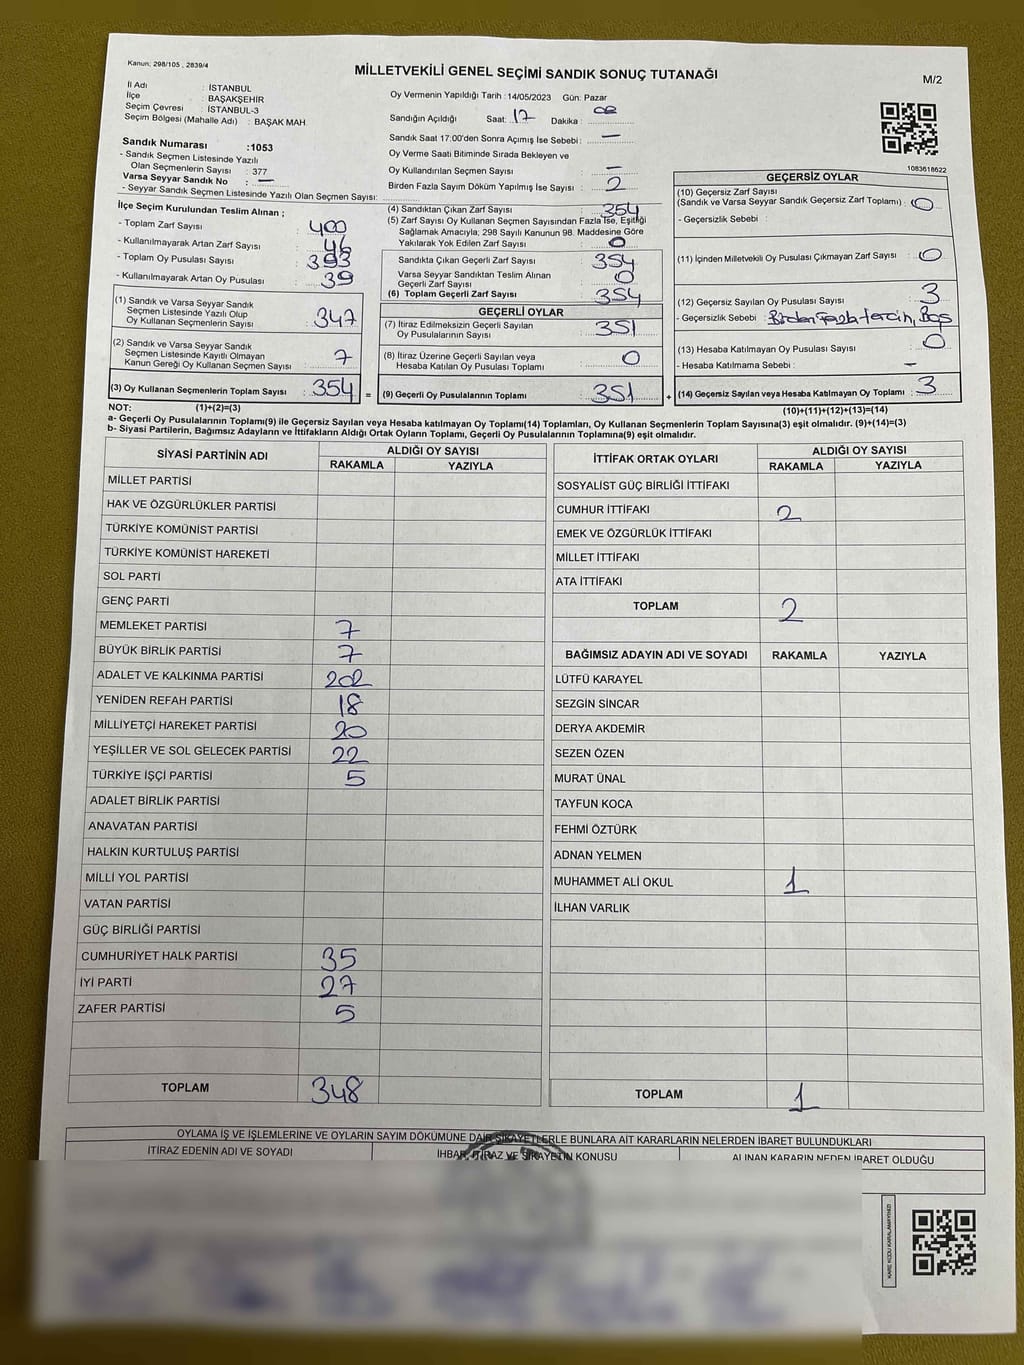 Kanun; 298/105 , 2839/4
MİLLETVEKİLİ GENEL SEÇİMİ SANDIK SONUÇ TUTANAĞI
M/2
İl Adı : İSTANBUL
İlçe : BAŞAKŞEHİR
Seçim Çevresi : İSTANBUL-3
Seçim Bölgesi (Mahalle Adı) : BAŞAK MAH.
Sandık Numarası :1053
- Sandık Seçmen Listesinde Yazılı
Olan Seçmenlerin Sayısı : 377
Varsa Seyyar Sandık No : —
- Seyyar Sandık Seçmen Listesinde Yazılı Olan Seçmen Sayısı:
Oy Vermenin Yapıldığı Tarih : 14/05/2023 Gün: Pazar
Sandığın Açıldığı Saat: 17 Dakika :
Sandık Saat 17:00'den Sonra Açımış İse Sebebi : —
Oy Verme Saati Bitiminde Sırada Bekleyen ve
Oy Kullandırılan Seçmen Sayısı : —
Birden Fazla Sayım Döküm Yapılmış İse Sayısı : 2
1083618622
İlçe Seçim Kurulundan Teslim Alınan ;
- Toplam Zarf Sayısı : 400
- Kullanılmayarak Artan Zarf Sayısı : 46
- Toplam Oy Pusulası Sayısı : 393
- Kullanılmayarak Artan Oy Pusulası : 39
(1) Sandık ve Varsa Seyyar Sandık
Seçmen Listesinde Yazılı Olup
Oy Kullanan Seçmenlerin Sayısı : 347
(2) Sandık ve Varsa Seyyar Sandık
Seçmen Listesinde Kayıtlı Olmayan
Kanun Gereği Oy Kullanan Seçmen Sayısı : 7
(3) Oy Kullanan Seçmenlerin Toplam Sayısı : 354 =
(4) Sandıktan Çıkan Zarf Sayısı : 354
(5) Zarf Sayısı Oy Kullanan Seçmen Sayısından Fazla İse, Eşitliği
Sağlamak Amacıyla; 298 Sayılı Kanunun 98. Maddesine Göre
Yakılarak Yok Edilen Zarf Sayısı : 0
Sandıkta Çıkan Geçerli Zarf Sayısı : 354
Varsa Seyyar Sandıktan Teslim Alınan
Geçerli Zarf Sayısı : 0
(6) Toplam Geçerli Zarf Sayısı : 354
GEÇERLİ OYLAR
(7) İtiraz Edilmeksizin Geçerli Sayılan
Oy Pusulalarının Sayısı : 351
(8) İtiraz Üzerine Geçerli Sayılan veya
Hesaba Katılan Oy Pusulası Toplamı : 0
(9) Geçerli Oy Pusulalarının Toplamı : 351 +
GEÇERSİZ OYLAR
(10) Geçersiz Zarf Sayısı
(Sandık ve Varsa Seyyar Sandık Geçersiz Zarf Toplamı) : 0
- Geçersizlik Sebebi :
(11) İçinden Milletvekili Oy Pusulası Çıkmayan Zarf Sayısı : 0
(12) Geçersiz Sayılan Oy Pusulası Sayısı : 3
- Geçersizlik Sebebi : Birden Fazla tercih, Boş
(13) Hesaba Katılmayan Oy Pusulası Sayısı : 0
- Hesaba Katılmama Sebebi : —
(14) Geçersiz Sayılan veya Hesaba Katılmayan Oy Toplamı : 3
NOT: (1)+(2)=(3) (10)+(11)+(12)+(13)=(14)
a- Geçerli Oy Pusulalarının Toplamı(9) ile Geçersiz Sayılan veya Hesaba katılmayan Oy Toplamı(14) Toplamları, Oy Kullanan Seçmenlerin Toplam Sayısına(3) eşit olmalıdır. (9)+(14)=(3)
b- Siyasi Partilerin, Bağımsız Adayların ve İttifakların Aldığı Ortak Oyların Toplamı, Geçerli Oy Pusulalarının Toplamına(9) eşit olmalıdır.
SİYASİ PARTİNİN ADI ALDIĞI OY SAYISI
RAKAMLA YAZIYLA
MİLLET PARTİSİ
HAK VE ÖZGÜRLÜKLER PARTİSİ
TÜRKİYE KOMÜNİST PARTİSİ
TÜRKİYE KOMÜNİST HAREKETİ
SOL PARTİ
GENÇ PARTİ
MEMLEKET PARTİSİ 7
BÜYÜK BİRLİK PARTİSİ 7
ADALET VE KALKINMA PARTİSİ 202
YENİDEN REFAH PARTİSİ 18
MİLLİYETÇİ HAREKET PARTİSİ 20
YEŞİLLER VE SOL GELECEK PARTİSİ 22
TÜRKİYE İŞÇİ PARTİSİ 5
ADALET BİRLİK PARTİSİ
ANAVATAN PARTİSİ
HALKIN KURTULUŞ PARTİSİ
MİLLİ YOL PARTİSİ
VATAN PARTİSİ
GÜÇ BİRLİĞİ PARTİSİ
CUMHURİYET HALK PARTİSİ 35
İYİ PARTİ 27
ZAFER PARTİSİ 5
TOPLAM 348
İTTİFAK ORTAK OYLARI ALDIĞI OY SAYISI
RAKAMLA YAZIYLA
SOSYALİST GÜÇ BİRLİĞİ İTTİFAKI
CUMHUR İTTİFAKI 2
EMEK VE ÖZGÜRLÜK İTTİFAKI
MİLLET İTTİFAKI
ATA İTTİFAKI
TOPLAM 2
BAĞIMSIZ ADAYIN ADI VE SOYADI RAKAMLA YAZIYLA
LÜTFÜ KARAYEL
SEZGİN SİNCAR
DERYA AKDEMİR
SEZEN ÖZEN
MURAT ÜNAL
TAYFUN KOCA
FEHMİ ÖZTÜRK
ADNAN YELMEN
MUHAMMET ALİ OKUL 1
İLHAN VARLIK
TOPLAM 1
OYLAMA İŞ VE İŞLEMLERİNE VE OYLARIN SAYIM DÖKÜMÜNE DAİR ŞİKAYETLERLE BUNLARA AİT KARARLARIN NELERDEN İBARET BULUNDUKLARI
İTİRAZ EDENİN ADI VE SOYADI İHBAR, İTİRAZ VE ŞİKAYETİN KONUSU ALINAN KARARIN NEDEN İBARET OLDUĞU
KARE KODU KARALAMAYINIZ!